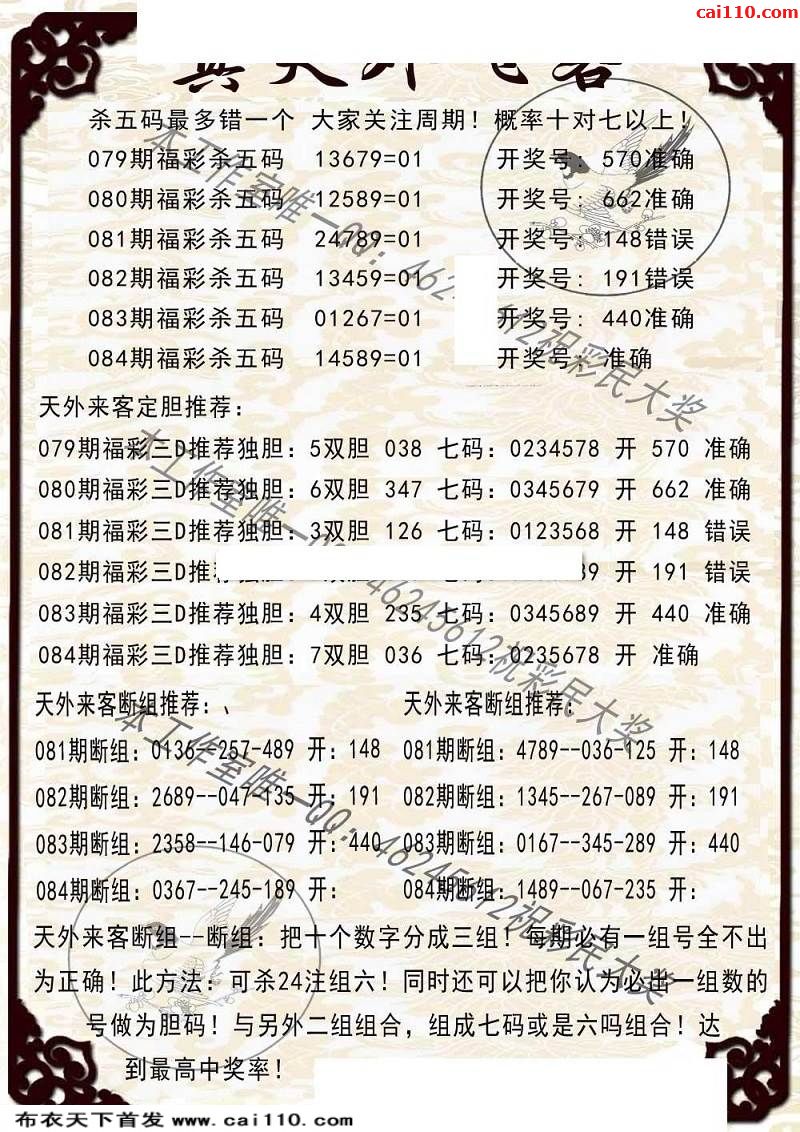 cai110.com
杀五码最多错一个 大家关注周期！概率十对七以上！
079期福彩杀五码 13679=01 开奖号：570准确
080期福彩杀五码 12589=01 开奖号：662准确
081期福彩杀五码 24789=01 开奖号：148错误
082期福彩杀五码 13459=01 开奖号：191错误
083期福彩杀五码 01267=01 开奖号：440准确
084期福彩杀五码 14589=01 开奖号：准确
天外来客定胆推荐：
079期福彩三D推荐独胆：5双胆 038 七码：0234578 开 570 准确
080期福彩三D推荐独胆：6双胆 347 七码：0345679 开 662 准确
081期福彩三D推荐独胆：3双胆 126 七码：0123568 开 148 错误
082期福彩三D推荐独胆： 89 开 191 错误
083期福彩三D推荐独胆：4双胆 235 七码：0345689 开 440 准确
084期福彩三D推荐独胆：7双胆 036 七码：0235678 开 准确
天外来客断组推荐：、 天外来客断组推荐：
081期断组：0136--257-489 开：148 081期断组：4789--036-125 开：148
082期断组：2689--047-135 开：191 082期断组：1345--267-089 开：191
083期断组：2358--146-079 开：440 083期断组：0167--345-289 开：440
084期断组：0367--245-189 开： 084期断组：1489--067-235 开：
天外来客断组--断组：把十个数字分成三组！每期必有一组号全不出
为正确！此方法：可杀24注组六！同时还可以把你认为必出一组数的
号做为胆码！与另外二组组合，组成七码或是六吗组合！达
到最高中奖率！
本工作室唯一QQ：46245612祝彩民大奖
本工作室唯一QQ：46245612祝彩民大奖
本工作室唯一QQ：46245612祝彩民大奖
布衣天下首发 www.cai110.com